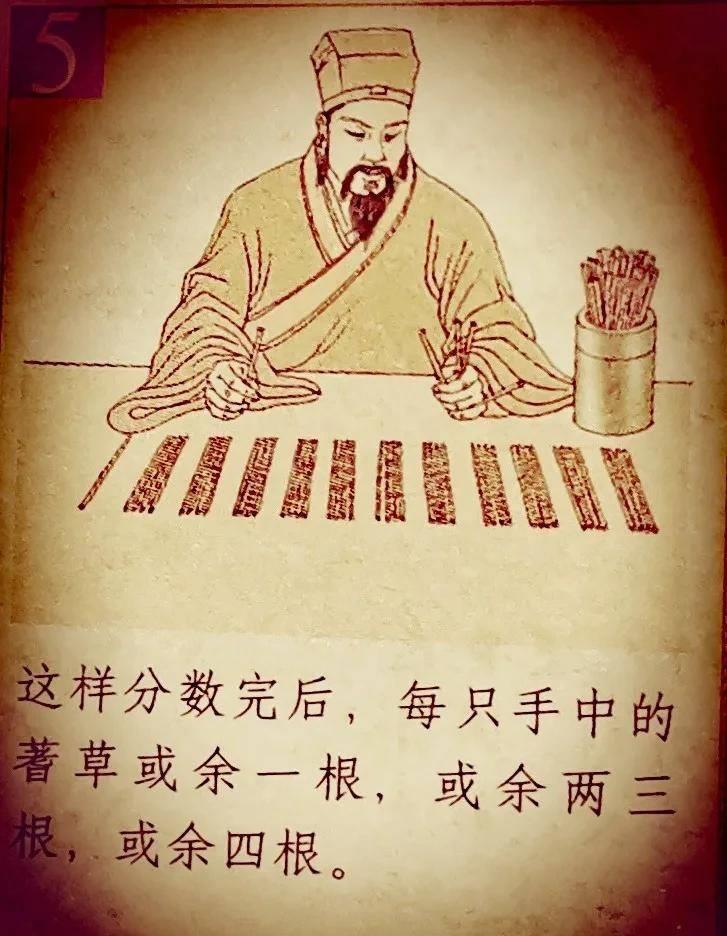 5
这样分数完后，每只手中的
蓍草或余一根，或余两三
根，或余四根。